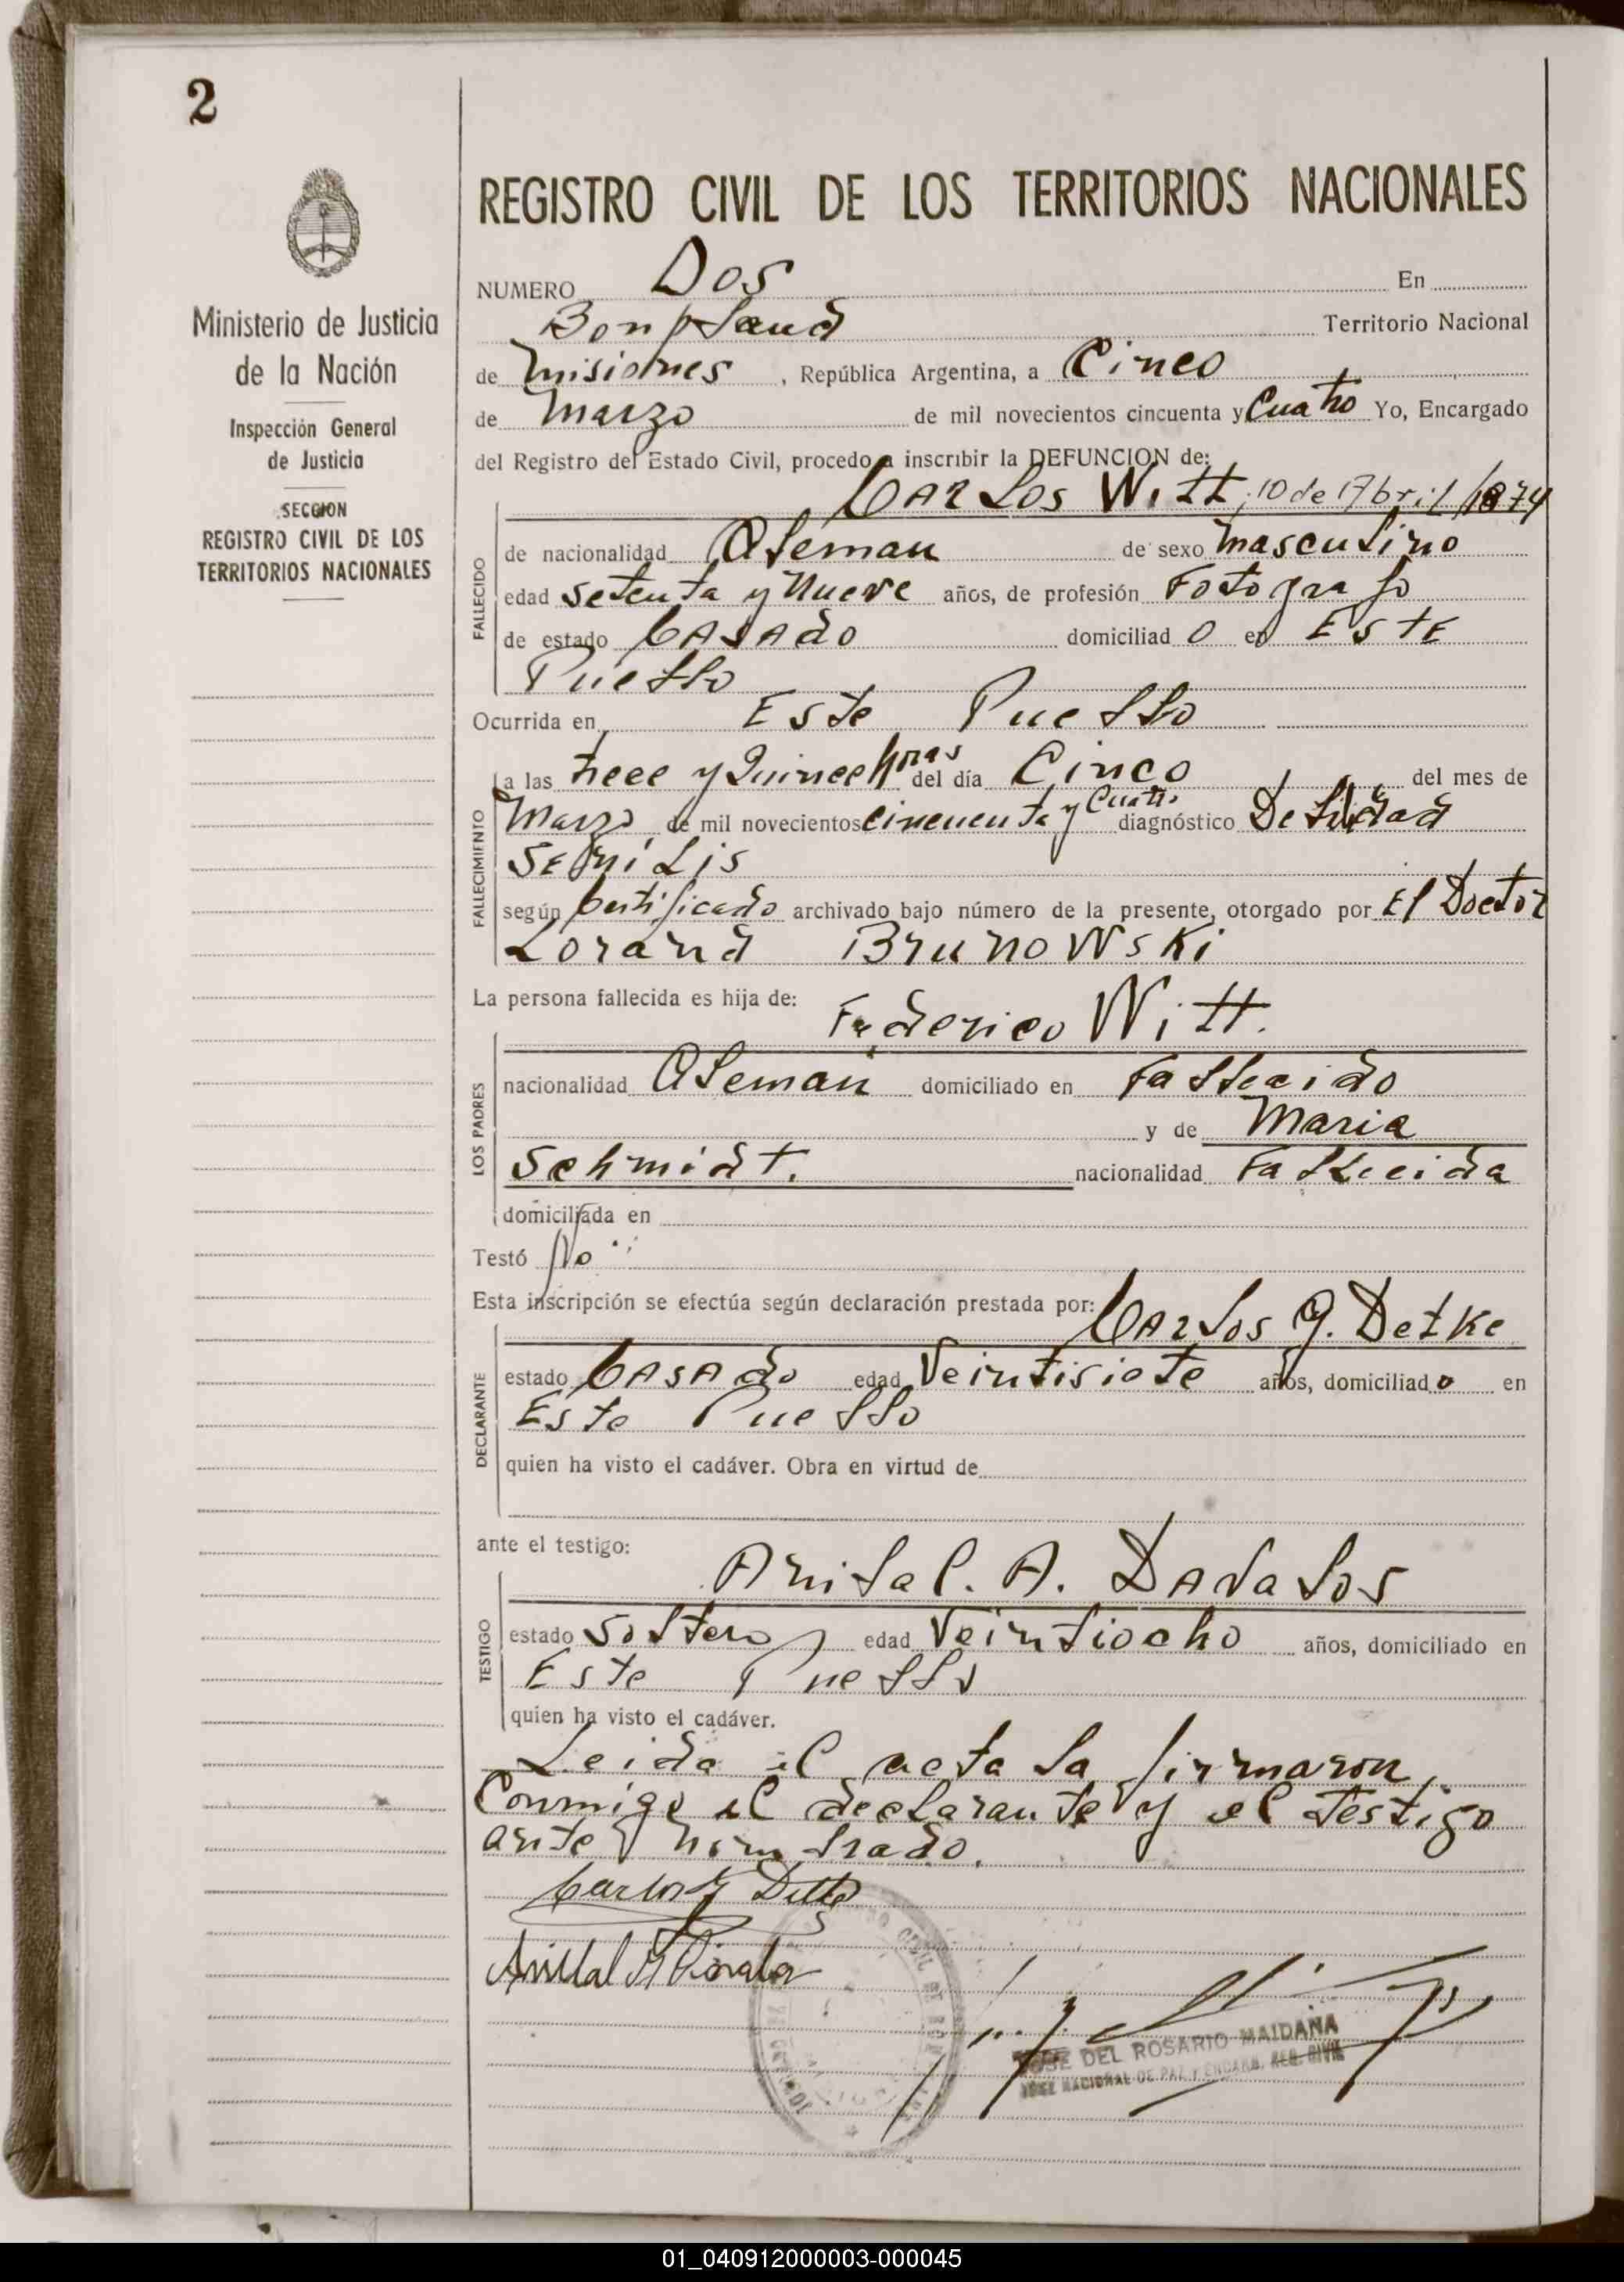 2
REGISTRO CIVIL DE LOS TERRITORIOS NACIONALES
Ministerio de Justicia
de la Nación
Inspección General
de Justicia
SECCION
REGISTRO CIVIL DE LOS
TERRITORIOS NACIONALES
NUMERO Dos En
Bonpland Territorio Nacional
de Misiones, República Argentina, a Cinco
de Marzo de mil novecientos cincuenta y Cuatro Yo, Encargado
del Registro del Estado Civil, procedo a inscribir la DEFUNCION de:
Carlos Witt, 10 de Abril/1874
FALLECIDO
de nacionalidad Aleman de sexo masculino
edad setenta y Nueve años, de profesión Fotografo
de estado Casado domiciliado en Este
Pueblo
Ocurrida en Este Pueblo
FALLECIMIENTO
a las trece y Quince horas del día Cinco del mes de
Marzo de mil novecientos cincuenta y Cuatro diagnóstico Debilidad
Senilis
según Certificado archivado bajo número de la presente, otorgado por El Doctor
Lorand Brunowski
La persona fallecida es hija de:
Federico Witt.
LOS PADRES
nacionalidad Aleman domiciliado en Fallecido
y de Maria
Schmidt. nacionalidad Fallecida
domiciliada en
Testó No
Esta inscripción se efectúa según declaración prestada por:
Carlos G. Detke
DECLARANTE
estado Casado edad Veintisiete años, domiciliado en
Este Pueblo
quien ha visto el cadáver. Obra en virtud de
ante el testigo:
Anibal. A. Davalos
TESTIGO
estado Soltero edad Veintiocho años, domiciliado en
Este Pueblo
quien ha visto el cadáver.
Leida el acta la firmaron
Conmigo el declarante y el testigo
ante nombrado.
JOSE DEL ROSARIO MAIDANA
JUEZ NACIONAL DE PAZ Y ENCARG. REG. CIVIL
01_040912000003-000045